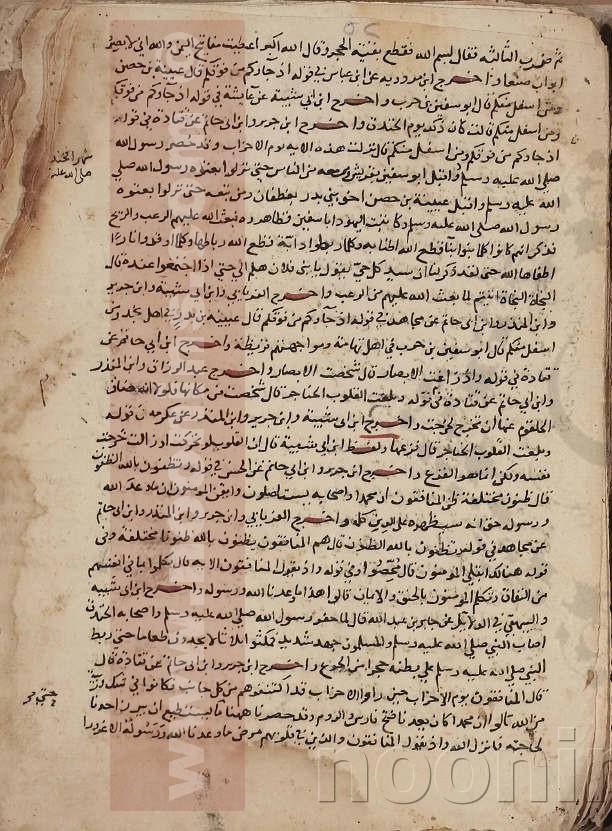 ثم ضرب الثالثة فقال بسم الله فقطع بقية الحجر وقال الله اكبر اعطيت مفاتيح اليمن والله اني لابصر
ابواب صنعاء واخرج ابن مردويه عن ابن عباس في قوله اذ جاوكم من فوقكم قال عيينة بن حصن
ومن اسفل منكم قال ابو سفين بن حرب واخرج ابن ابي شيبة عن عايشة في قوله اذ جاوكم من فوقكم
ومن اسفل منكم قالت كان ذلك يوم الخندق واخرج ابن جرير وابن ابي حاتم عن قتادة في قوله
اذ جاوكم من فوقكم ومن اسفل منكم قال نزلت هذه الاية يوم الاحزاب وقد حصر رسول الله
صلى الله عليه وسلم شهرا الخندق
صلى الله عليه وسلم واقبل ابو سفين بقريش ومن معه من الناس حتى نزلوا بعقوة رسول الله صلى
الله عليه وسلم واقبل عيينة بن حصن اخو بني بدر بغطفان ومن تبعه حتى نزلوا بعقوة
رسول الله صلى الله عليه وسلم وكاتبت اليهود ابا سفين فظاهروه فبعث الله عليهم الرعب والريح
فذكر انهم كانوا كلما بنوا بناء قطع الله اطنابه وكلما ربطوا دابة قطع الله رباطها وكلما اوقدوا نارا
اطفاها الله حتى لقد ذكر لنا ان سيد كل حي يقول يا بني فلان هلم الي حتى اذا اجتمعوا عنده قال
النجاة النجاة اتيتم لما بعث الله عليهم من الرعب واخرج الفريابي وابن ابي شيبة وابن جرير
وابن المنذر وابن ابي حاتم عن مجاهد في قوله اذ جاوكم من فوقكم قال عيينة بن بدر في اهل نجد ومن
اسفل منكم قال ابو سفين بن حرب في اهل تهامة ومواجهتهم قريظة واخرج ابن ابي حاتم عن
قتادة في قوله واذ زاغت الابصار قال شخصت الابصار واخرج عبد الرزاق وابن المنذر
وابن ابي حاتم عن قتادة في قوله وبلغت القلوب الحناجر قال شخصت من مكانها فلولا انه ضاق
الحلقوم عنها ان تخرج لخرجت واخرج ابن ابي شيبة وابن جرير وابن المنذر عن عكرمة في قوله
وبلغت القلوب الحناجر قال فزعها ولفظ ابن ابي شيبة قال ان القلوب لو تحركت او زالت خرجت
نفسه ولكن انما هو الفزع واخرج ابن جرير وابن ابي حاتم عن الحسن في قوله وتظنون بالله الظنونا
قال ظنون مختلفة ظن المنافقون ان محمدا واصحابه يستاصلون وايقن المومنون ان ما وعد الله
ورسوله حق انه سيظهره على الدين كله واخرج الفريابي وابن جرير وابن المنذر وابن ابي حاتم
عن مجاهد في قوله وتظنون بالله الظنون قال هم المنافقون يظنون بالله ظنونا مختلفة وفي
قوله هنالك ابتلي المومنون قال محصوا وفي قوله واذ يقول المنافقون الاية قال تكلموا بما في انفسهم
من النفاق وتكلم المومنون بالحق والايمان قالوا هذا ما وعدنا الله ورسوله واخرج ابن ابي شيبة
والبيهقي في الدلايل عن جابر بن عبد الله قال لما حفر رسول الله صلى الله عليه وسلم واصحابه الخندق
اصاب النبي صلى الله عليه وسلم والمسلمون جهد شديد فمكثوا ثلاثا لا يجدون طعاما حتى ربط
النبي صلى الله عليه وسلم على بطنه حجرا من الجوع واخرج ابن جرير وابن ابي حاتم عن قتادة قال
قال المنافقون يوم الاحزاب حين راوا الاحزاب قد اكتنفوهم من كل جانب فكانوا في شك وريبة
من الله قالوا ان محمدا كان يعدنا فتح فارس والروم وقد حصرنا ههنا ما يستطيع ان يبرز احدنا
لحاجته فانزل الله واذ يقول المنافقون والذين في قلوبهم مرض ما وعدنا الله ورسوله الا غرورا
nooni